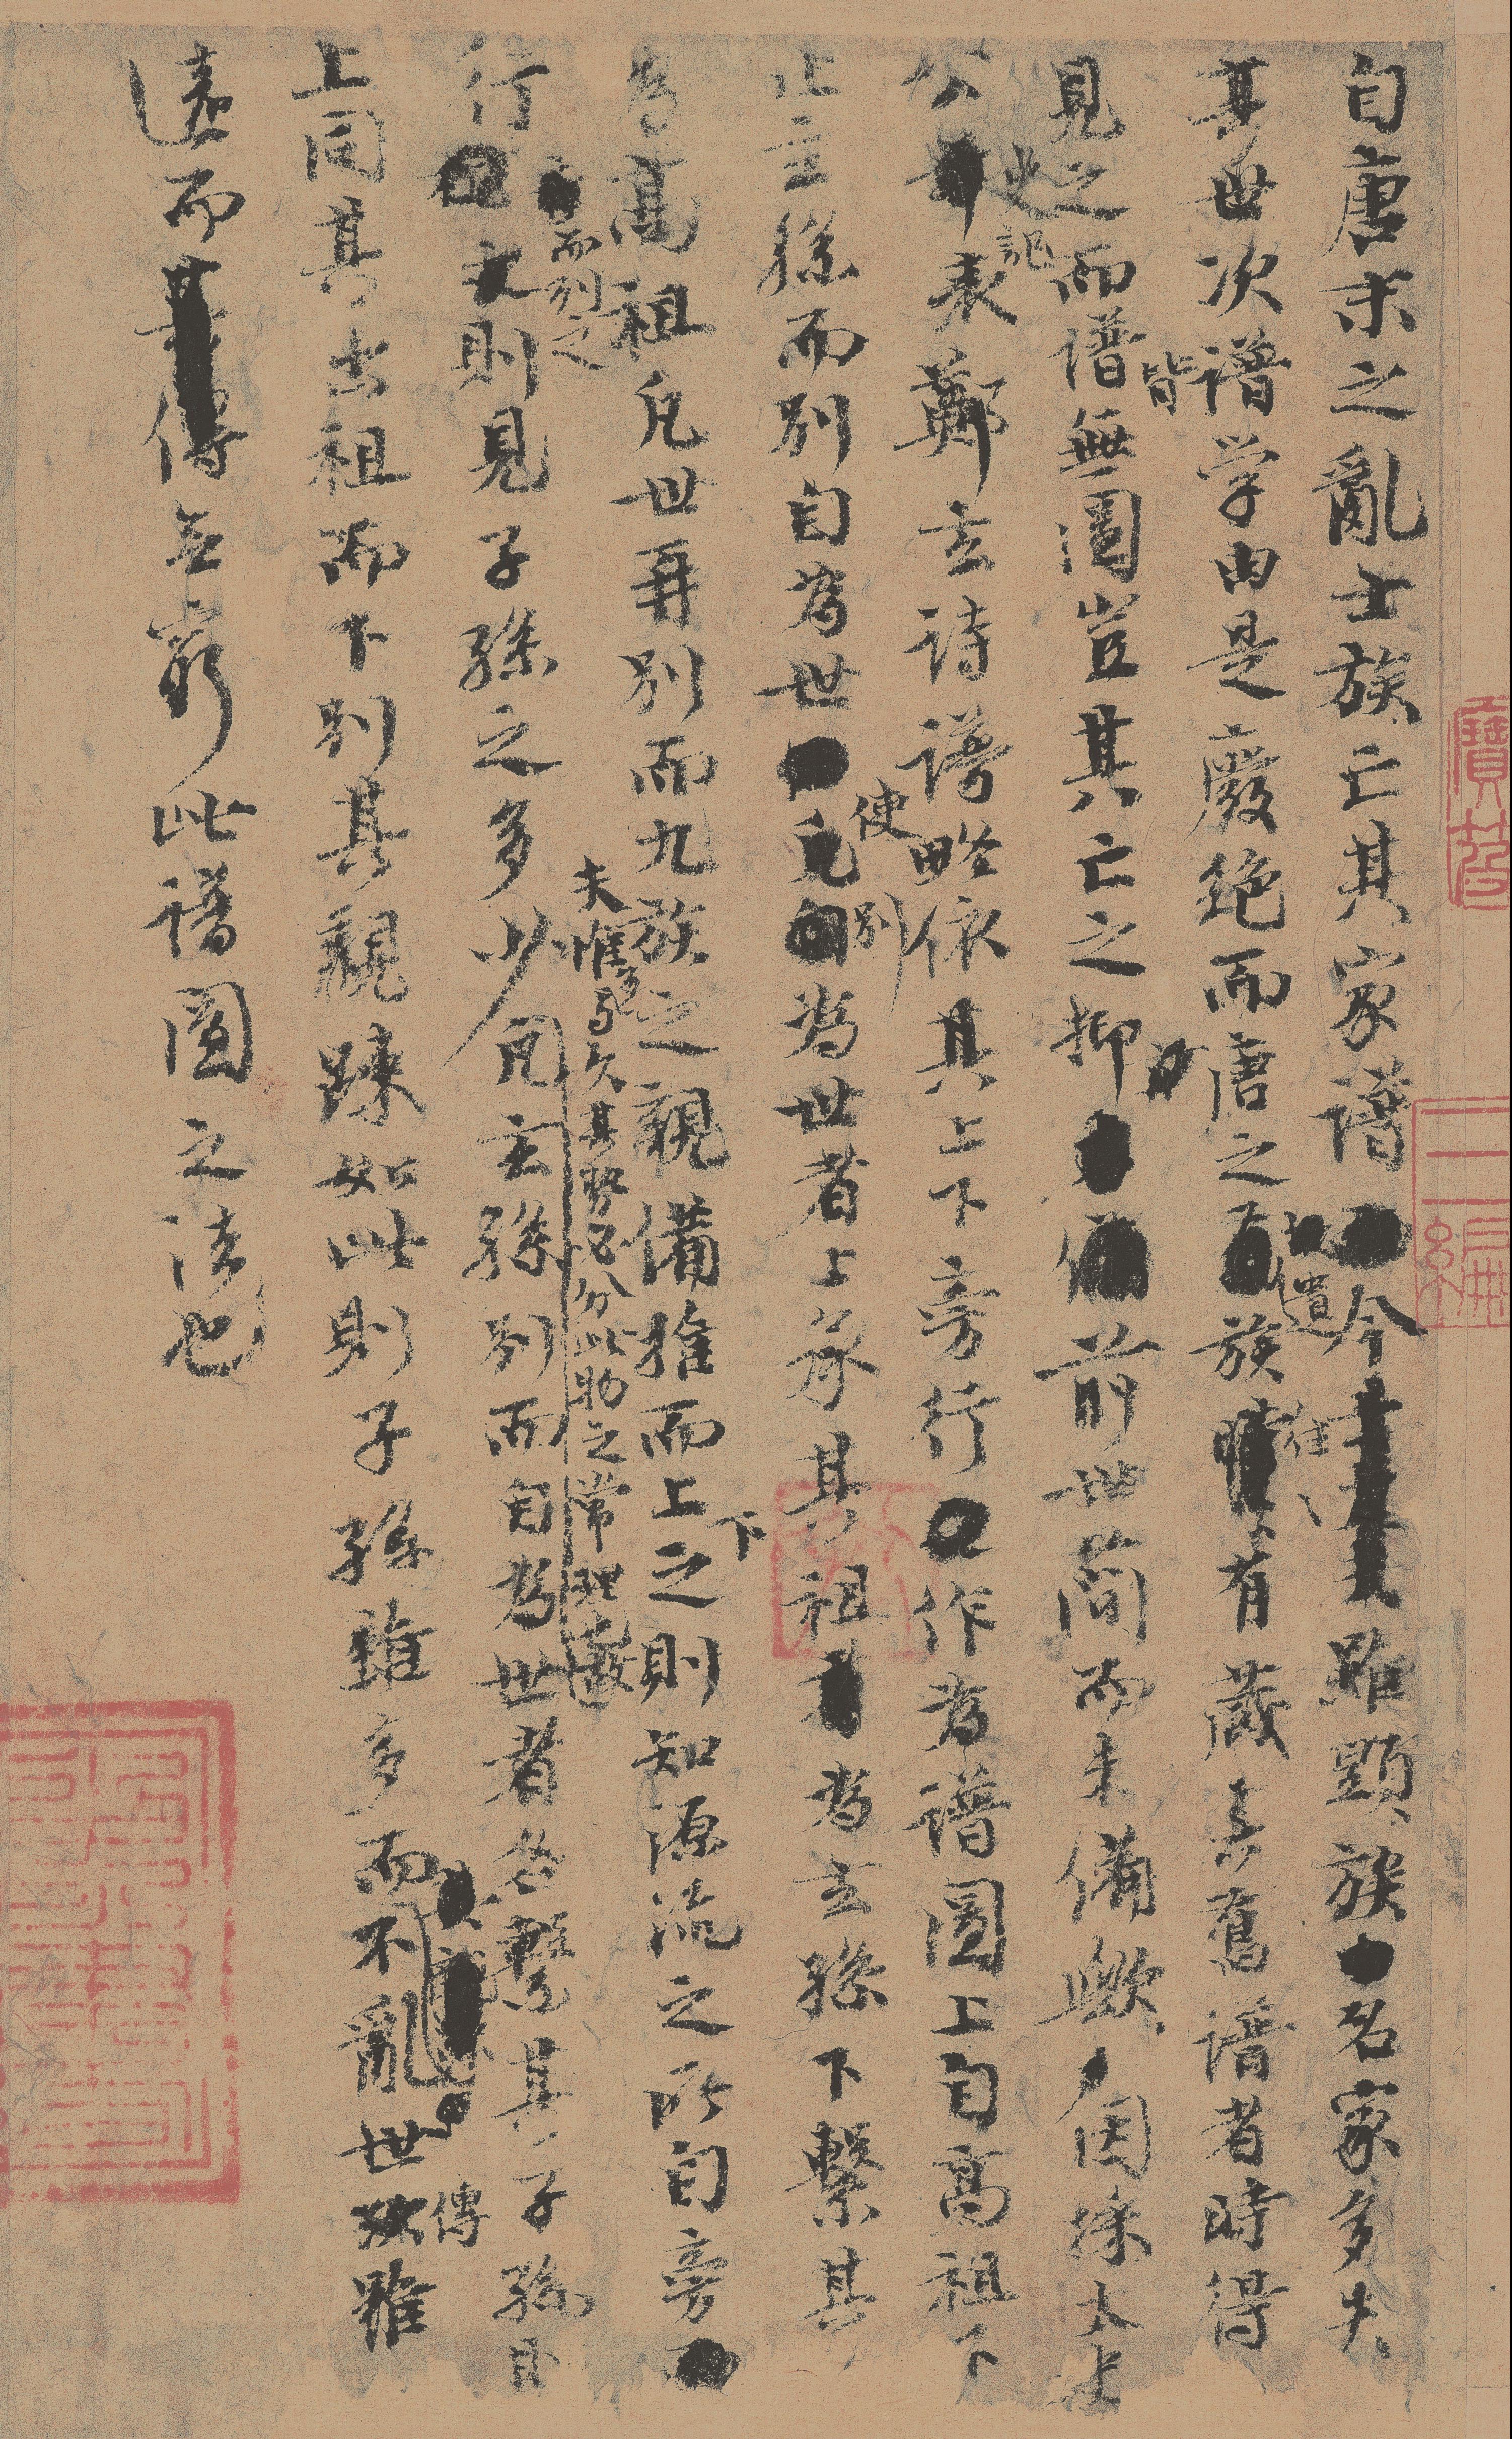 自唐末之亂士族亡其家譜今雖顯族名家多失
其世次譜学由是廢絶而唐之遺族往往有藏其舊譜者時得
見之而譜皆無圖豈其亡之抑前世簡而未備歟因採太史
公史記表鄭玄詩譜略依其上下旁行作為譜圖上自高祖下
止玄孫而别自為世使别為世者上承其祖為玄孫下繫其
為高祖凡世再别而九族之親備推而上下之則知源流之所自旁
行而列之則見子孫之多少夫惟多與久其勢必分此物之常理也故凡玄孫别而自為世者各繫其子孫且
上同其出祖而下别其親疎如此則子孫雖多而不亂世傳雖
遠而無窮此譜圖之法也